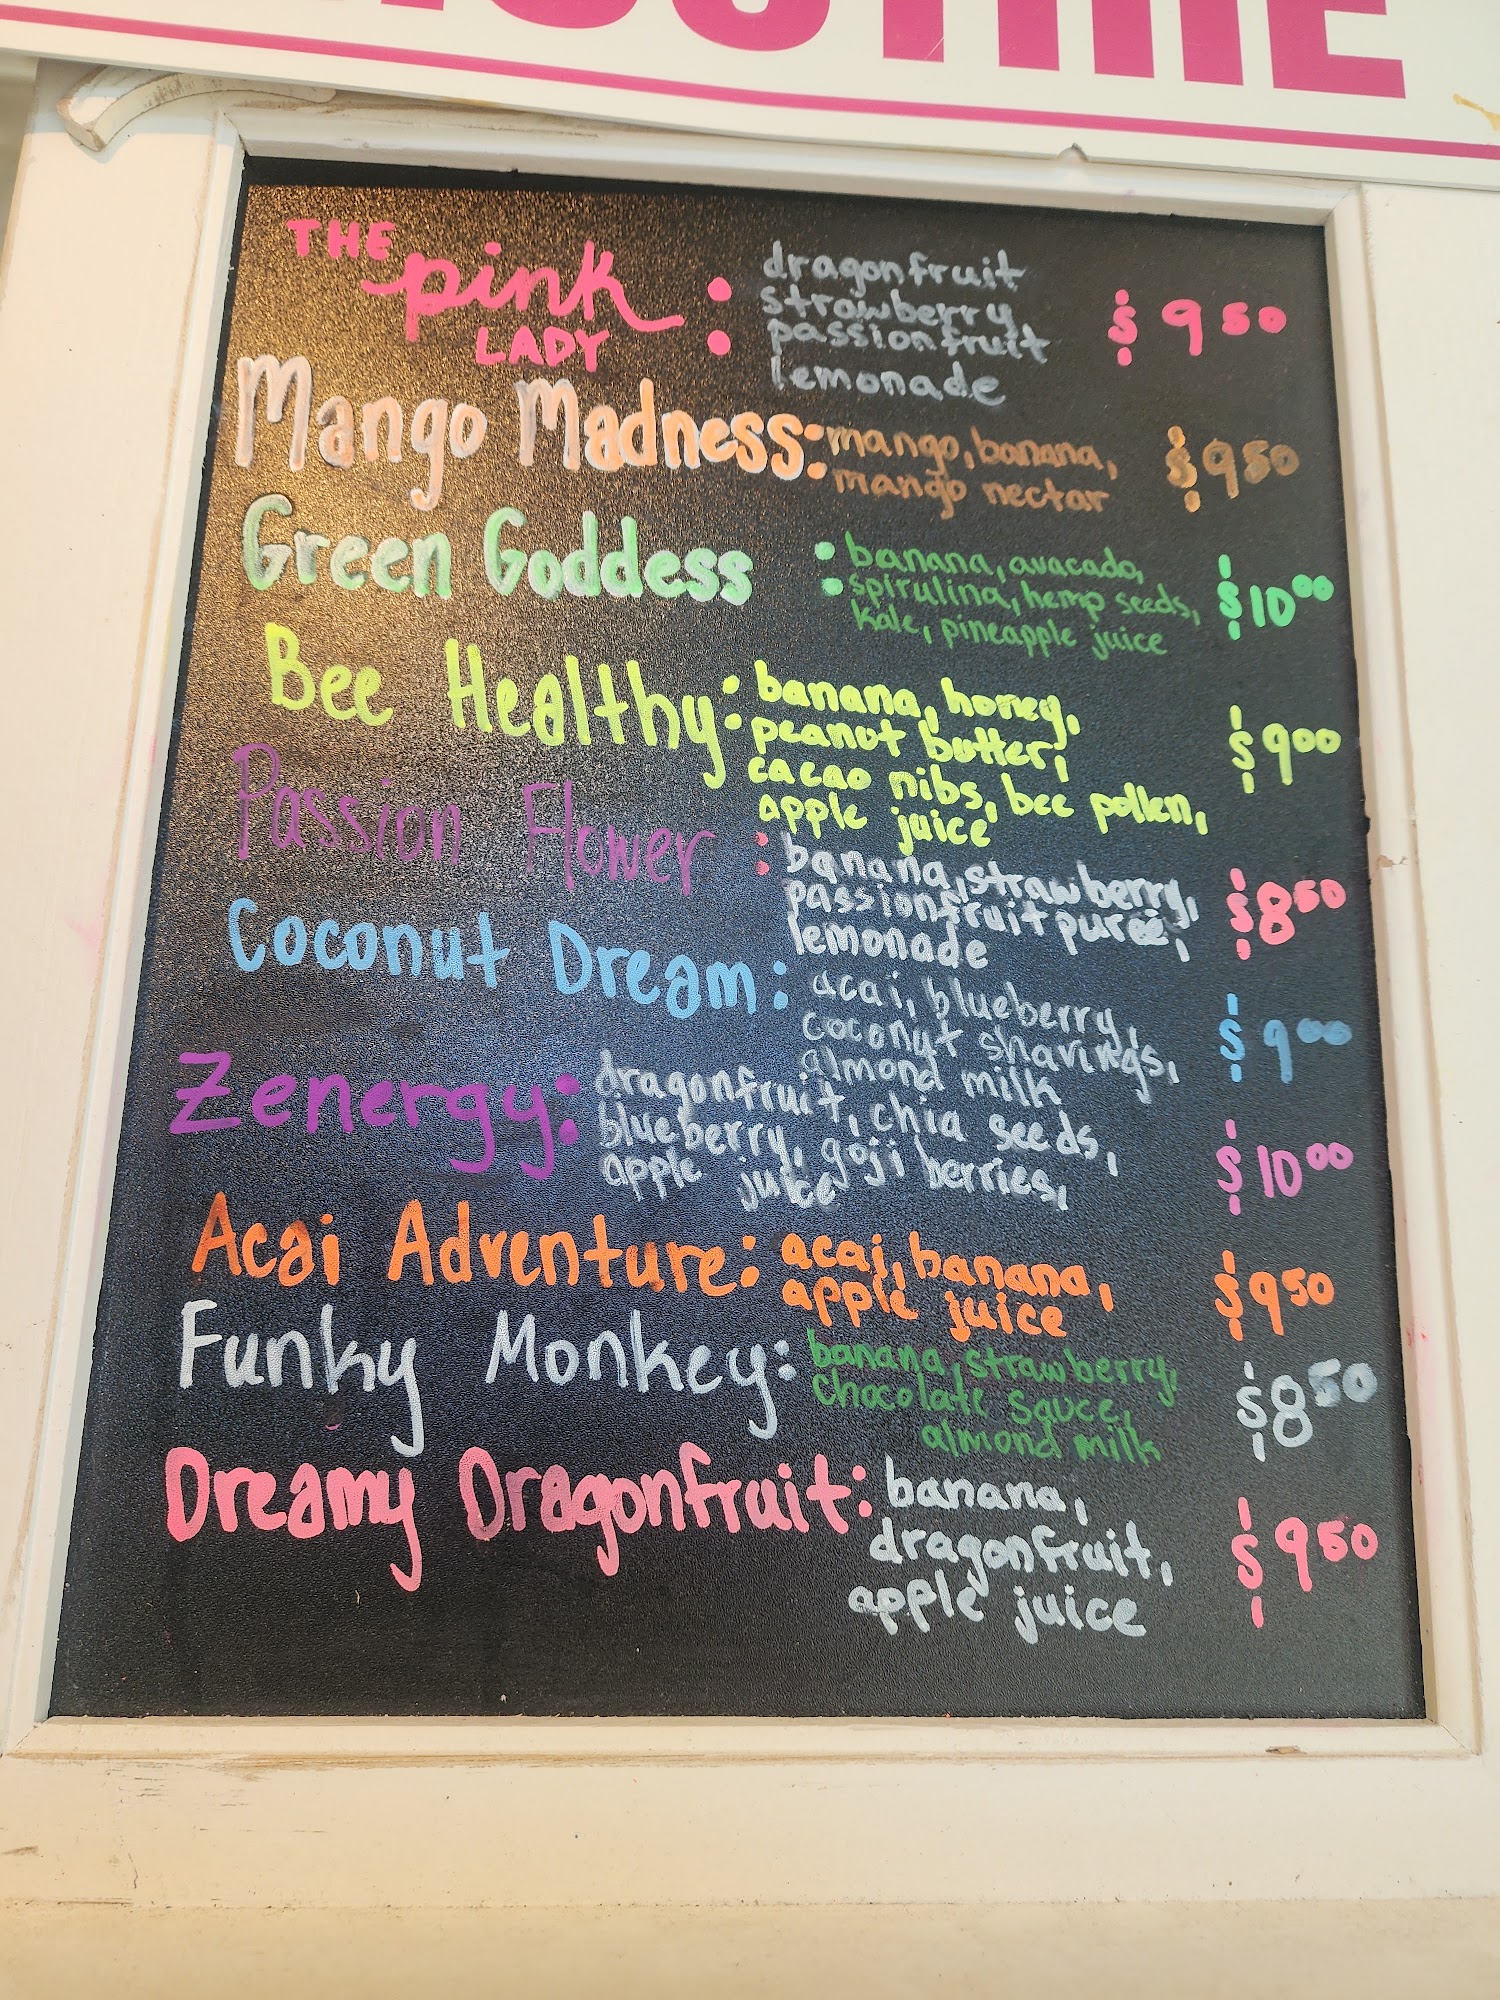 THE pink LADY : dragonfruit strawberry passionfruit lemonade $9.50
Mango Madness: mango, banana, $950
mango nectar
Green Goddess : banana, avacado, $10.00
spirulina, hemp seeds,
kale, pineapple juice
Bee Healthy: banana, honey, $9.00
peanut butter,
cacao nibs, bee pollen,
apple juice
Passion Flower : banana, strawberry, $8.50
passionfruit pureé,
lemonade
Coconut Dream: acai, blueberry, $9.00
coconut shavings,
almond milk
Zenergy: dragonfruit, chia seeds, $10.00
blueberry, goji berries,
apple juice
Acai Adventure: acai, banana, $9.50
apple juice
Funky Monkey: banana, strawberry, $8.50
chocolate sauce,
almond milk
Dreamy Dragonfruit: banana, $9.50
dragonfruit,
apple juice